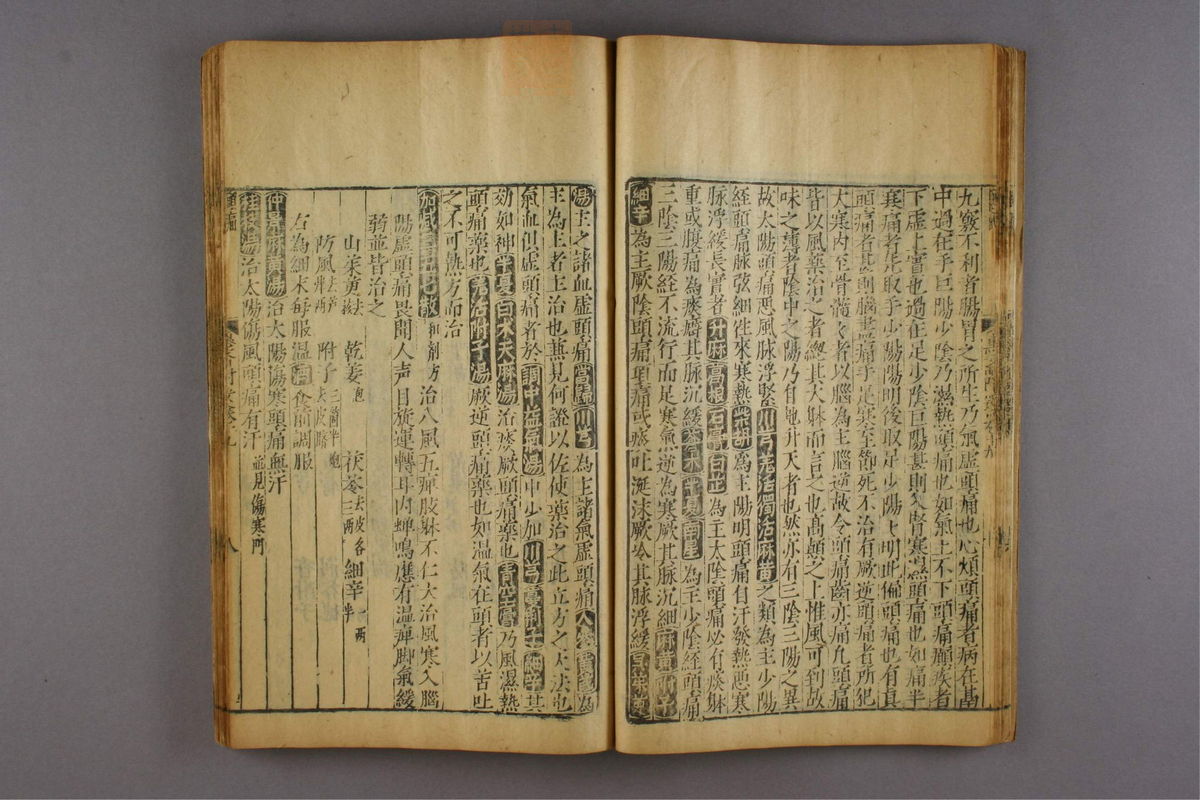 九竅不利者腸胃之所生乃氣虛頭痛也心煩頭痛者病在鬲
中過在手巨陽少陰乃濕熱頭痛也如氣上不下頭痛顛疾者
下虛上實也過在足少陰巨陽甚則入腎寒濕頭痛也如痛半
寒痛者先取手少陽陽明後取足少陽陽明此偏頭痛也有真
頭痛者甚則腦盡痛手足寒至節死不治有厥逆頭痛者所犯
大寒內至骨髓髓者以腦為主腦逆故令頭痛齒亦痛凡頭痛
皆以風藥治之者總其大躰而言之也高顛之上惟風可到故
味之薄者陰中之陽乃自地升天者也然亦有三陰三陽之異
故太陽頭痛惡風脉浮緊川芎羌活獨活麻黃之類為主少陽
經頭痛脉弦細徃來寒熱柴胡為主陽明頭痛自汗發熱惡寒
脉浮緩長實者升麻葛根石膏白芷為主太陰頭痛必有痰躰
重或腹痛為痰癖其脉沉緩蒼术半夏南星為主少陰經頭痛
三陰三陽經不流行而足寒氣逆為寒厥其脉沉細麻黃附子
細辛為主厥陰頭痛項痛或痰吐涎沫厥冷其脉浮緩吳茱萸
湯主之諸血虛頭痛當歸川芎為主諸氣虛頭痛人參黃耆為
主為主者主治也兼見何證以佐使藥治之此立方之大法也
氣血俱虛頭痛者於調中益氣湯中少加川芎蔓荊子細辛其
効如神半夏白术天麻湯治痰厥頭痛藥也青空膏乃風濕熱
頭痛藥也羌活附子湯厥逆頭痛藥也如濕氣在頭者以苦吐
之不可執方而治
加減三五七散和劑方治八風五痺肢躰不仁大治風寒入腦
陽虛頭痛畏聞人声目旋運轉耳內蟬鳴應有濕痺脚氣緩
弱並皆治之
山茱萸去核 乾姜炮 茯苓去皮各三兩 細辛一兩半
防風去芦 附子三箇半炮去皮臍
右為細末每服溫酒食前調服
仲景麻黃湯治太陽傷寒頭痛無汗
桂枝湯治太陽傷風頭痛有汗並見傷寒門
八